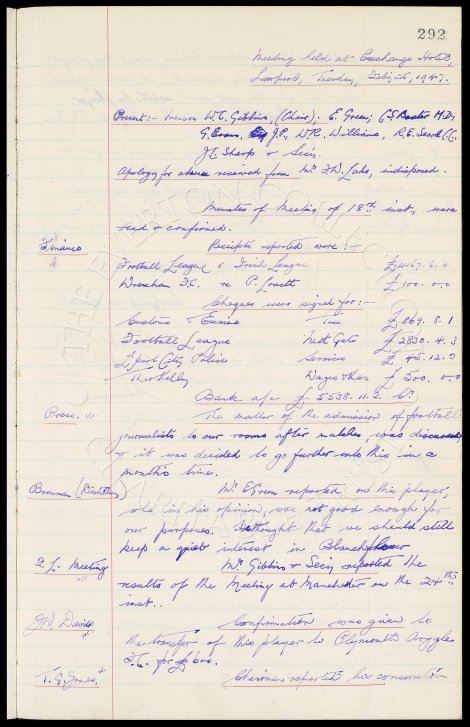 292
Meeting held at Exchange Hotel,
Liverpool, Tuesday, Feby 25, 1947.
Present:- Messrs W.C. Gibbins, (Chair); E. Green; C.S. Baxter M.D;
G. Evans, J.P., W.R. Williams, R.E. Searle C.C.
J.C. Sharp & Secy.
Apology for absence received from Mr. F.W. Lake, indisposed.
Minutes of Meeting of 18th inst, were
read & confirmed.
Finance
Receipts reported were:-
Football League v Irish League £4167.6.0
Wrexham F.C. re P. Lovett £100.0.0
Cheques were signed for:-
Customs & Excise Tax £869.8.1
Football League Nett Gate £2830.4.3
L'pool City Police Services £45.12.0
Theo Kelly Wages & Exs £500.0.0
Bank a/c £5538.11.3. Cr.
Press.
The matter of the admission of football
journalists to our rooms after matches, was discussed,
& it was decided to go further into this in a
month's time.
Brennan
Mr. E Green reported on this player,
who in his opinion, was not good enough for
our purposes. He thought that we should still
keep a quiet interest in Blanchflower
F.L. Meeting
Mr. Gibbins & Secy reported the
results of the Meeting at Manchester on the 24th
inst..
J.W. Davies
Confirmation was given to
the transfer of this player to Plymouth Argyle
F.C. for £600.
T.G. Jones,
Chairman reported his conversation
THE EVERTON COLLECTION